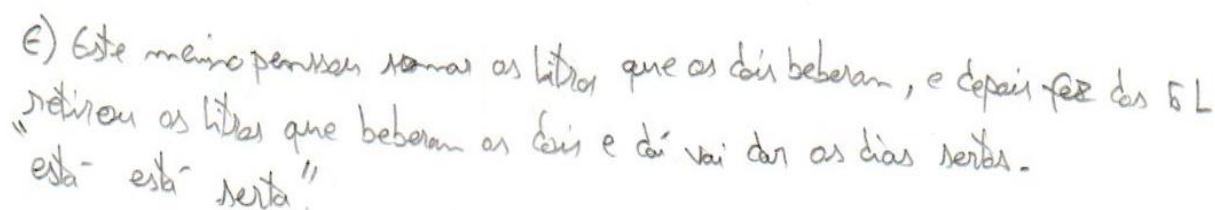 E) Este menino penssou somar os litros que os dois beberam, e depois fez dos 6 L
retirou os litros que beberam os dois e daí vai dar os dias sertos.
"está está serta"